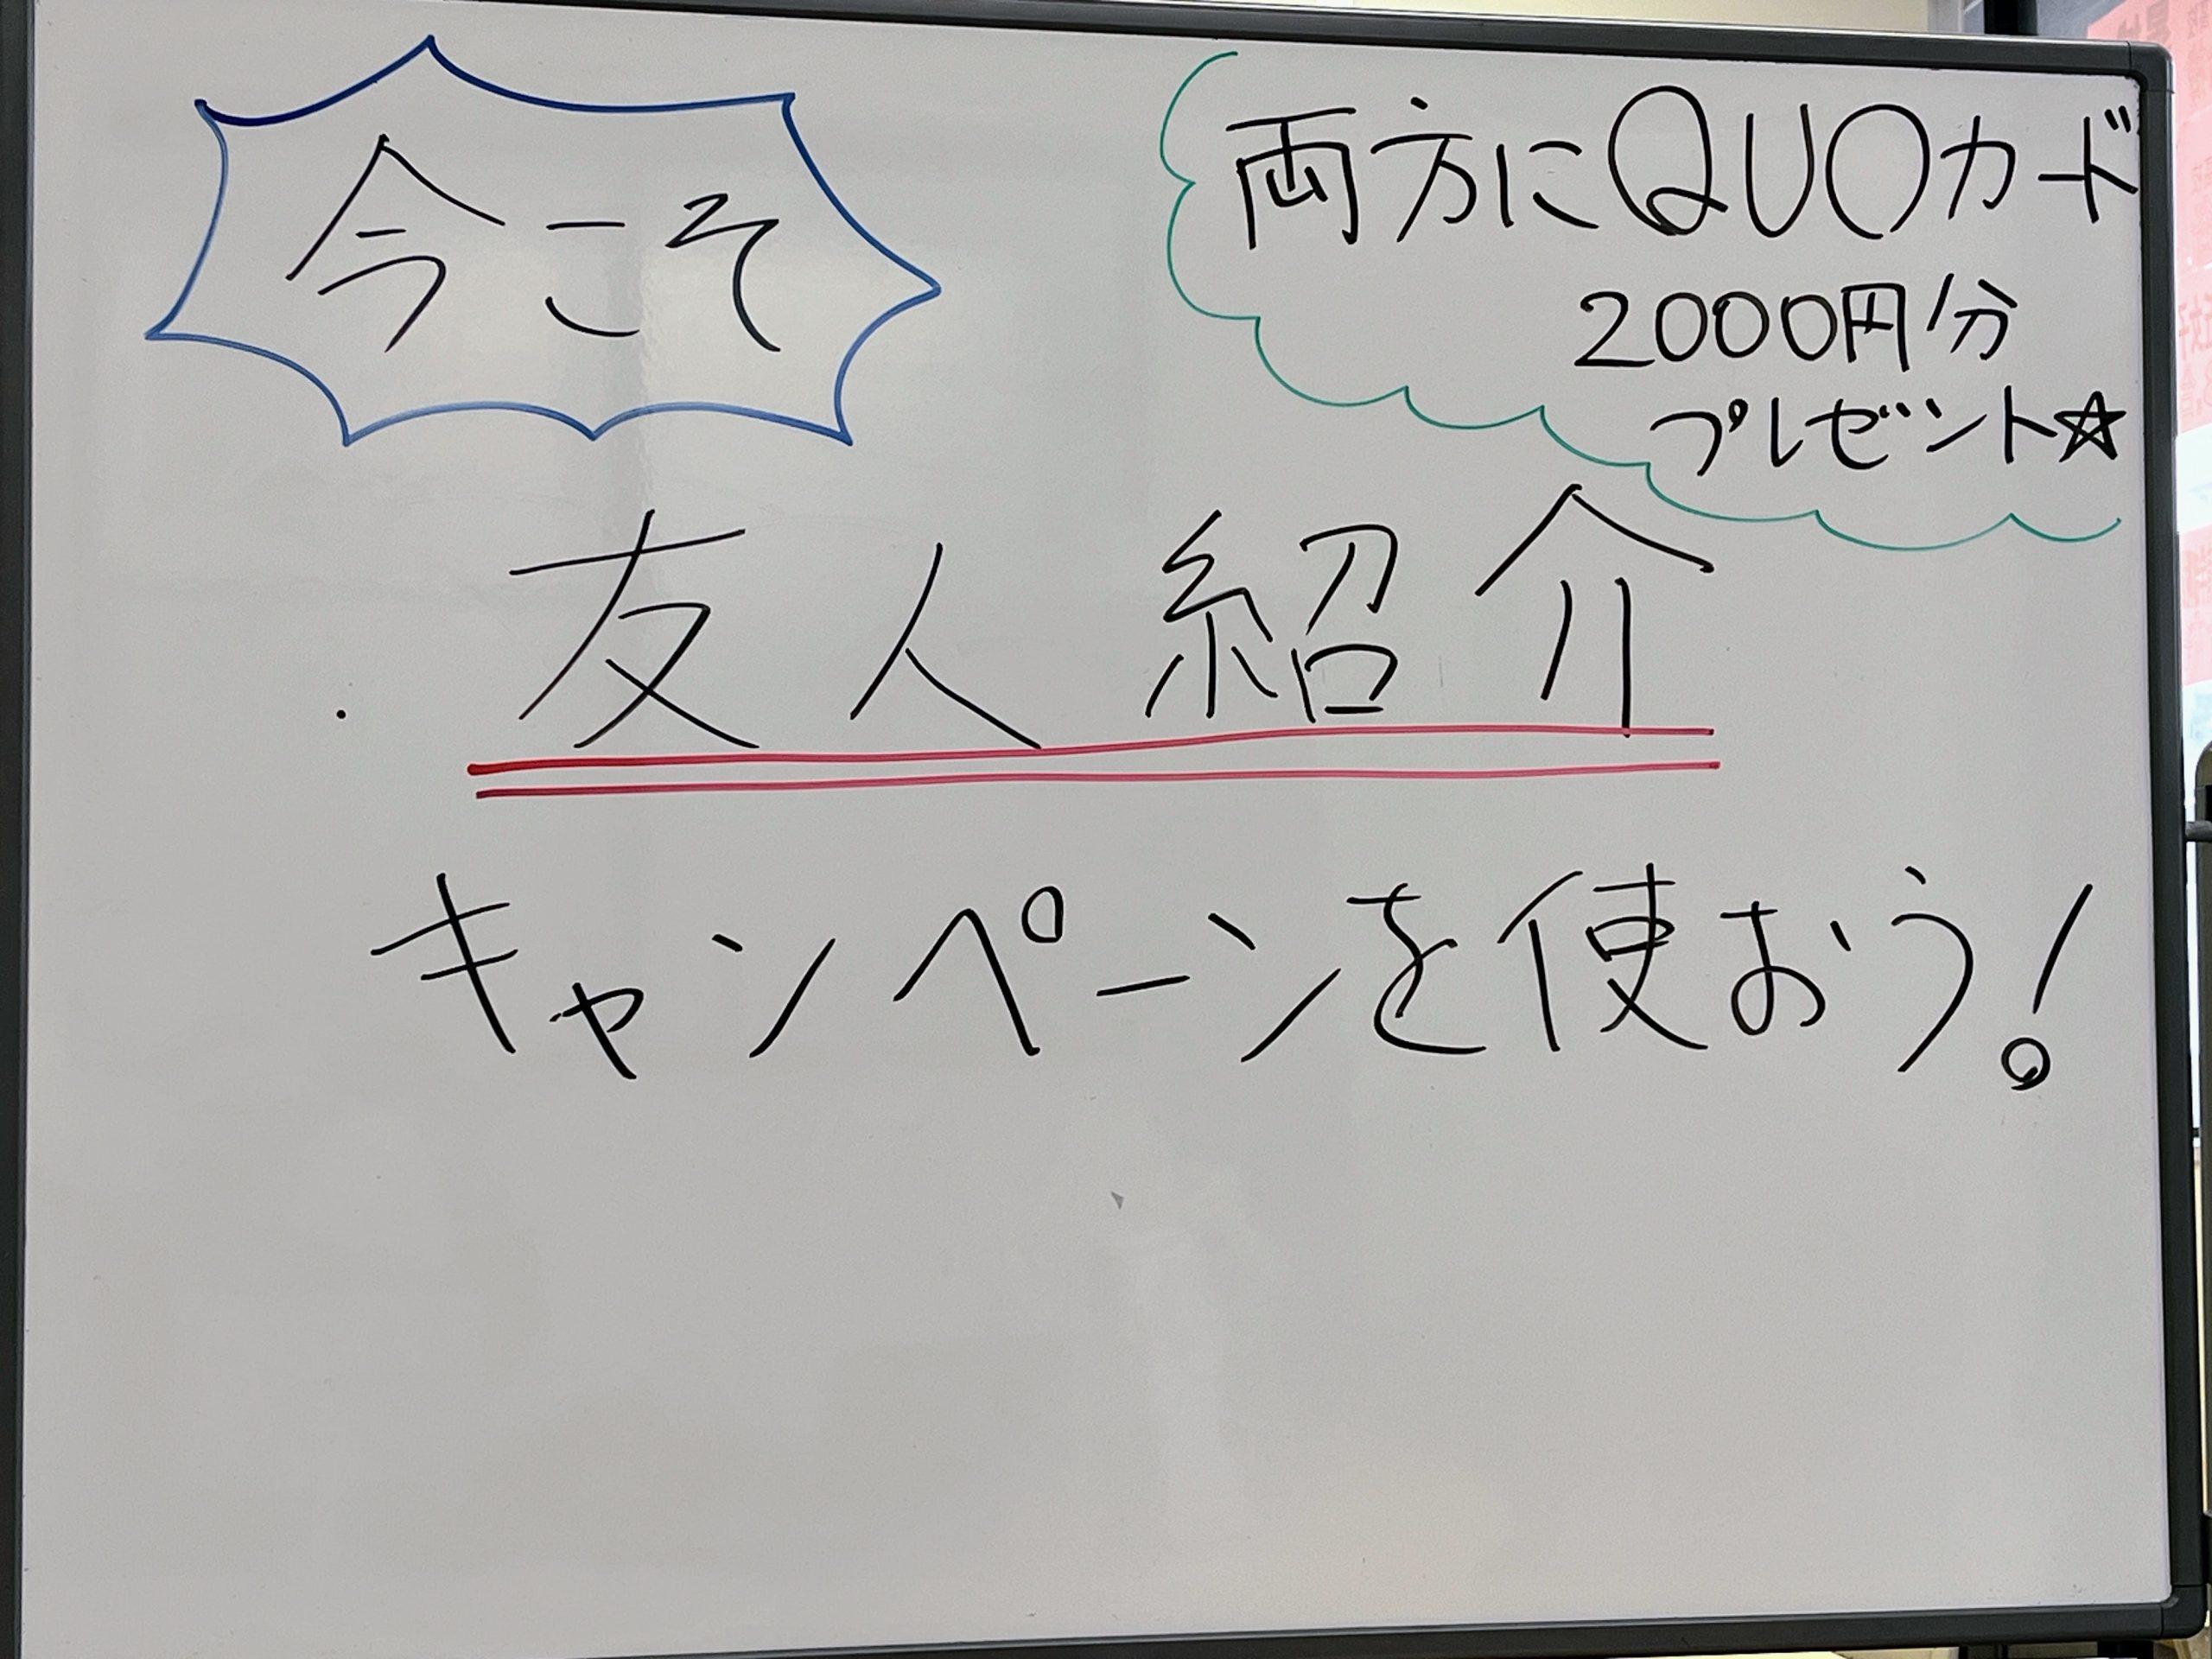 今こそ
両方にQUOカード
2000円分
プレゼント☆
友人紹介
キャンペーンを使おう!